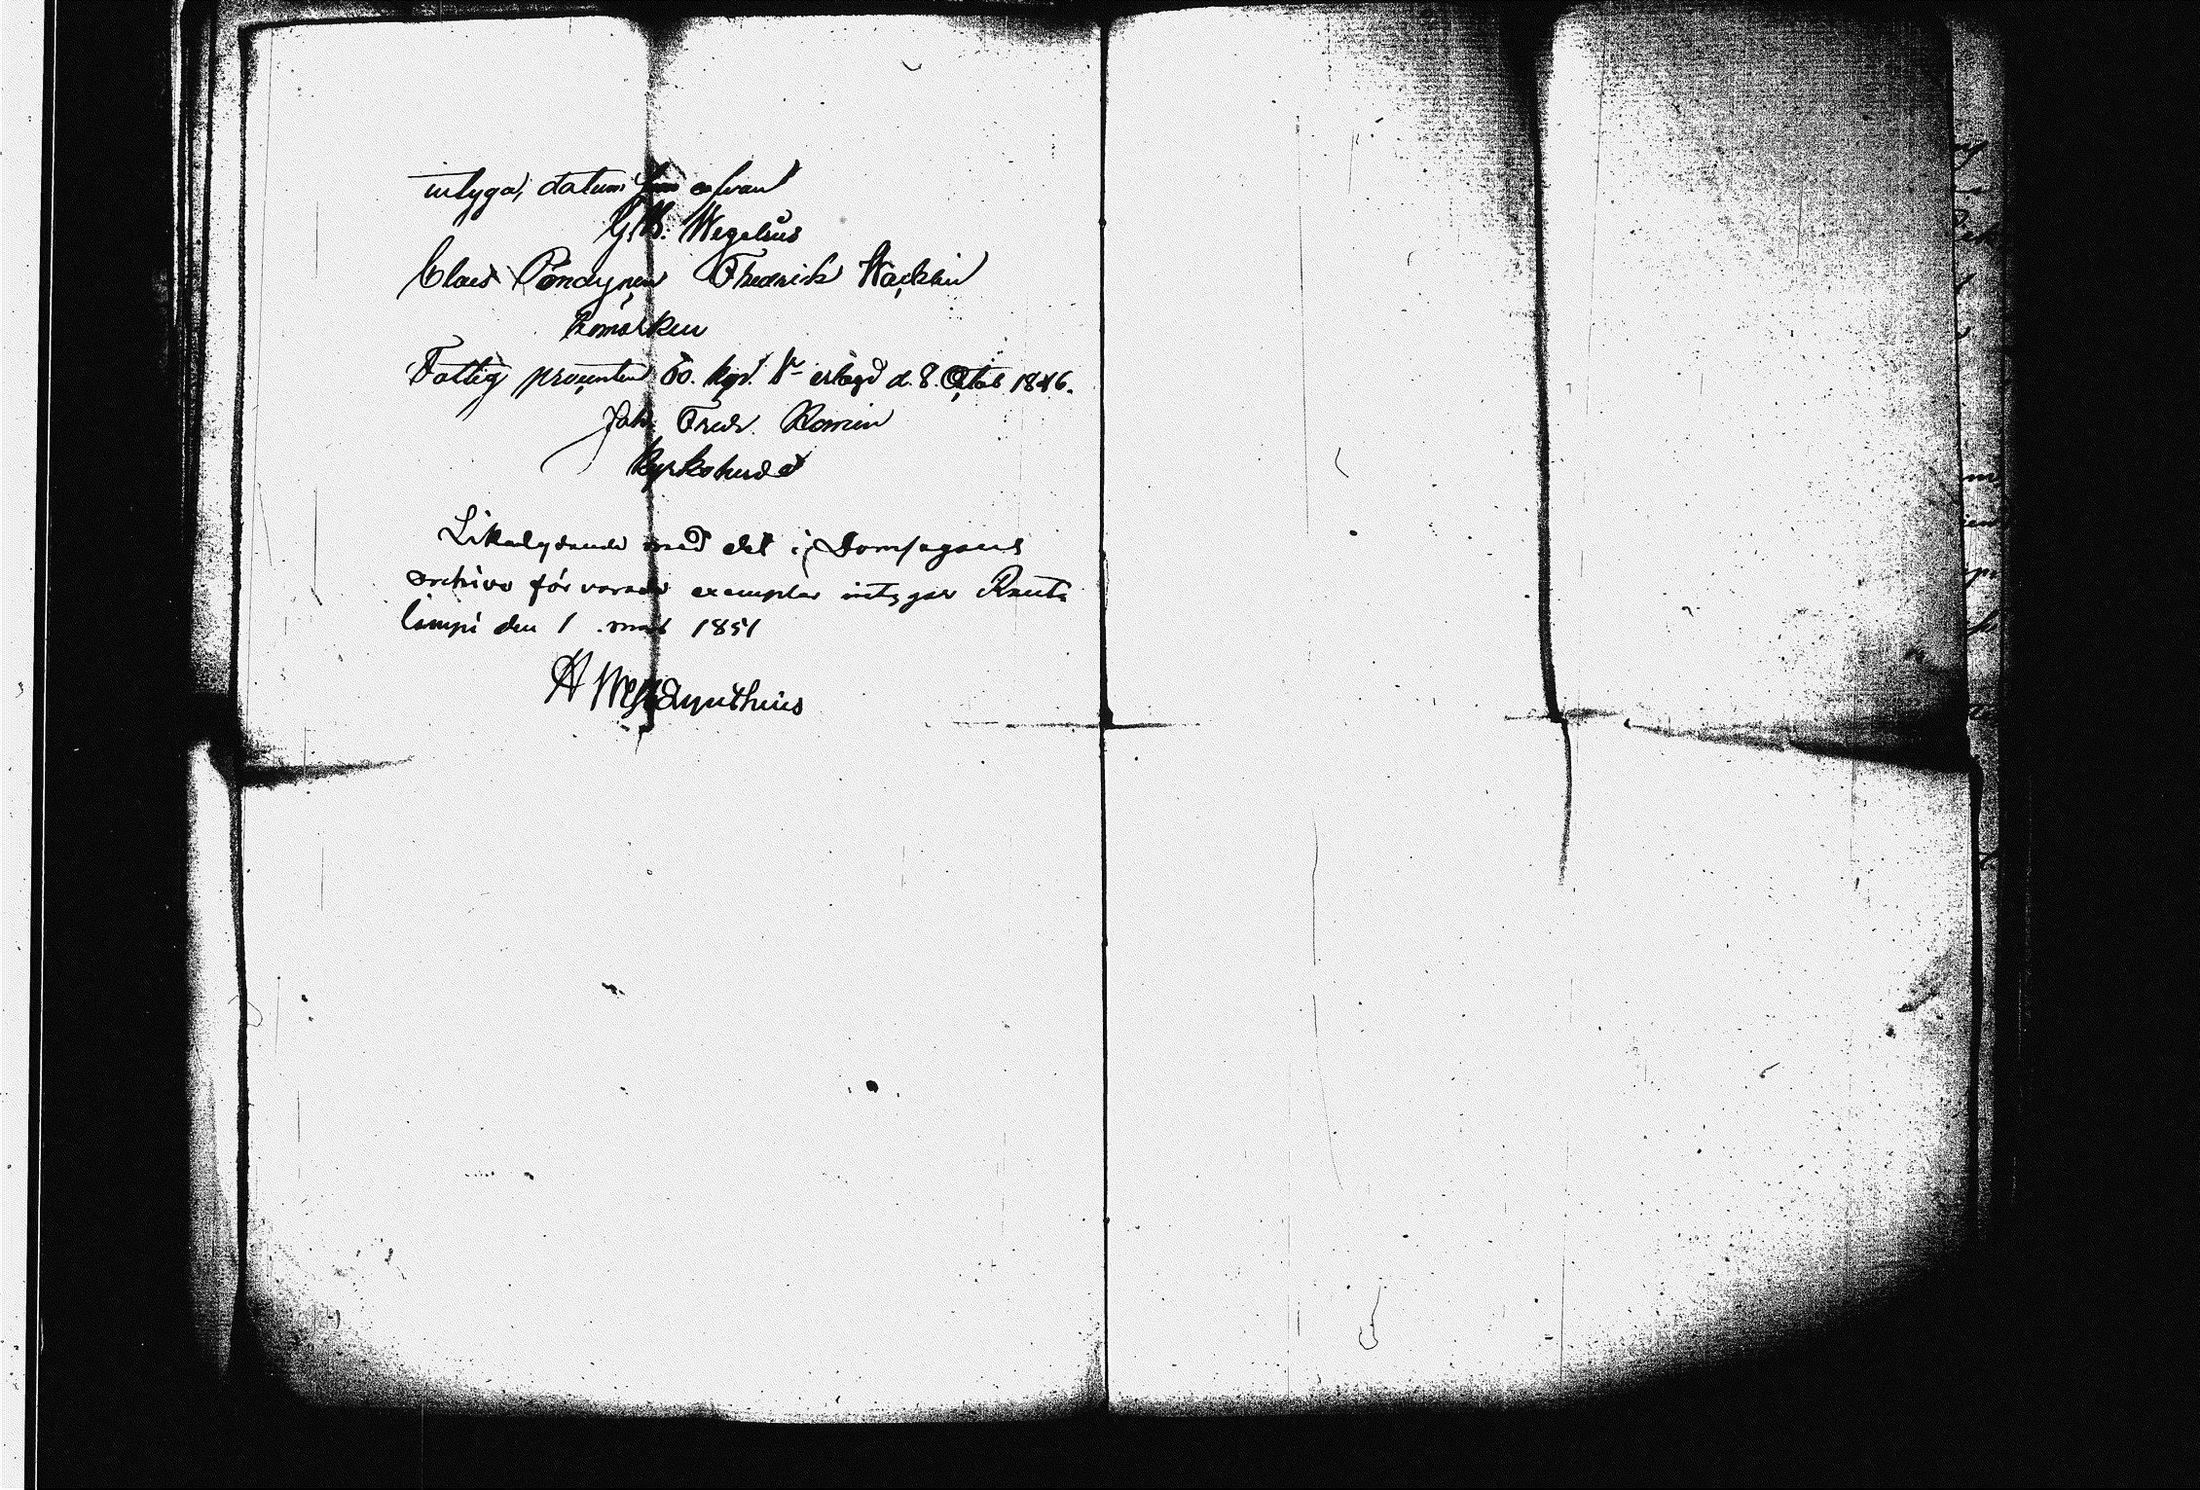 intyga, datum som ofvan
G. W. Wegelius
Claes Pöndynen Fredrick Wacklin
Bomärken
Fattig procenten 60. kop. Sr erlagd d. 8. Octob 1846.
Joh. Fredr. Romin
Kyrkoherde
Likalydande med det i Domsagans
archivo förvarade exemplar intygar Rauta
lampi den 1 mars 1851
A Westdynthius